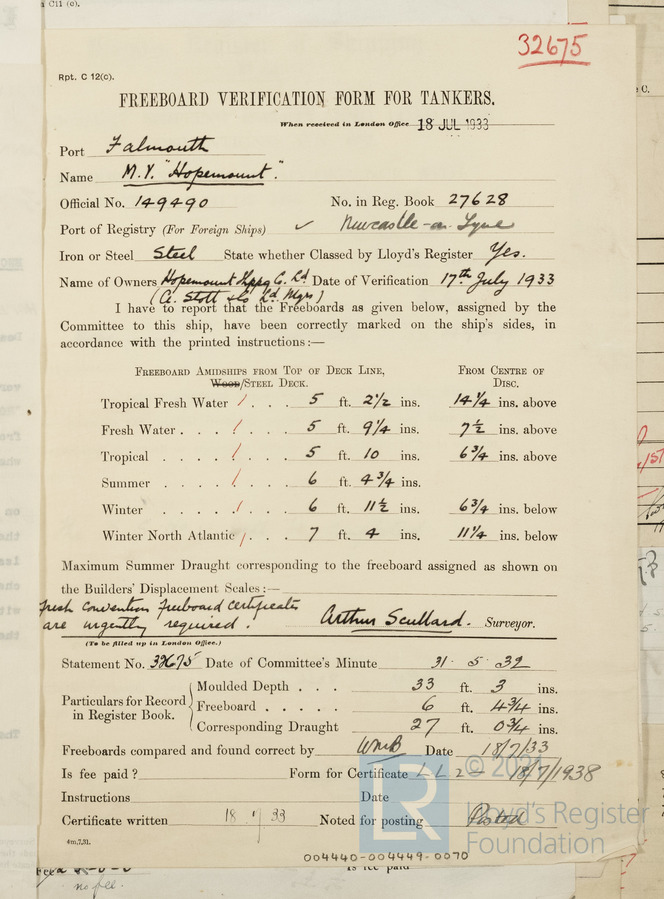 C11 (c).
32675
Rpt. C 12(c).
FREEBOARD VERIFICATION FORM FOR TANKERS.
When received in London Office 18 JUL 1933
Port Falmouth
Name M.V. "Hopemount".
Official No. 149490 No. in Reg. Book 27628
Port of Registry (For Foreign Ships) ✓ Newcastle-on-Tyne
Iron or Steel Steel State whether Classed by Lloyd's Register Yes.
Name of Owners Hopemount Shppg C. Ld Date of Verification 17th July 1933
(A. Stott & Co Ld Mgrs)
I have to report that the Freeboards as given below, assigned by the
Committee to this ship, have been correctly marked on the ship's sides, in
accordance with the printed instructions:—
Freeboard Amidships from Top of Deck Line, From Centre of
Wood/Steel Deck. Disc.
Tropical Fresh Water / . . . 5 ft. 2½ ins. 14¼ ins. above
Fresh Water . . . / . . . 5 ft. 9¼ ins. 7½ ins. above
Tropical . . . . / . . . 5 ft. 10 ins. 6¾ ins. above
Summer . . . . / . . . 6 ft. 4¾ ins.
Winter . . . . / . . . 6 ft. 11½ ins. 6¾ ins. below
Winter North Atlantic / . . . 7 ft. 4 ins. 11¼ ins. below
Maximum Summer Draught corresponding to the freeboard assigned as shown on
the Builders' Displacement Scales:—
Fresh Convention freeboard certificates
are urgently required. Arthur Scullard. Surveyor.
(To be filled up in London Office.)
Statement No. 32675 Date of Committee's Minute 31. 5. 32
Particulars for Record in Register Book.
Moulded Depth . . . 33 ft. 3 ins.
Freeboard . . . . . 6 ft. 4¾ ins.
Corresponding Draught 27 ft. 0¾ ins.
Freeboards compared and found correct by WMB Date 18/7/33
Is fee paid? Form for Certificate L L 2 — 18/7/1938
Instructions Date
Certificate written 18 . 7 33 Noted for posting Posted
4m,7,31.
© 2021
LR
Lloyd's Register
Foundation
004440-004449-0070
is fee paid
no fee.